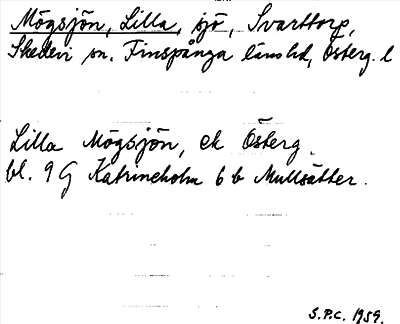 Mögsjön, Lilla, sjö, Svarttorp,
Skedevi sn. Finspånga länshd, Österg. l
Lilla Mögsjön, ek Österg.
bl. 9 G Katrineholm 6 b Mullsätter.
S.P.C. 1959.